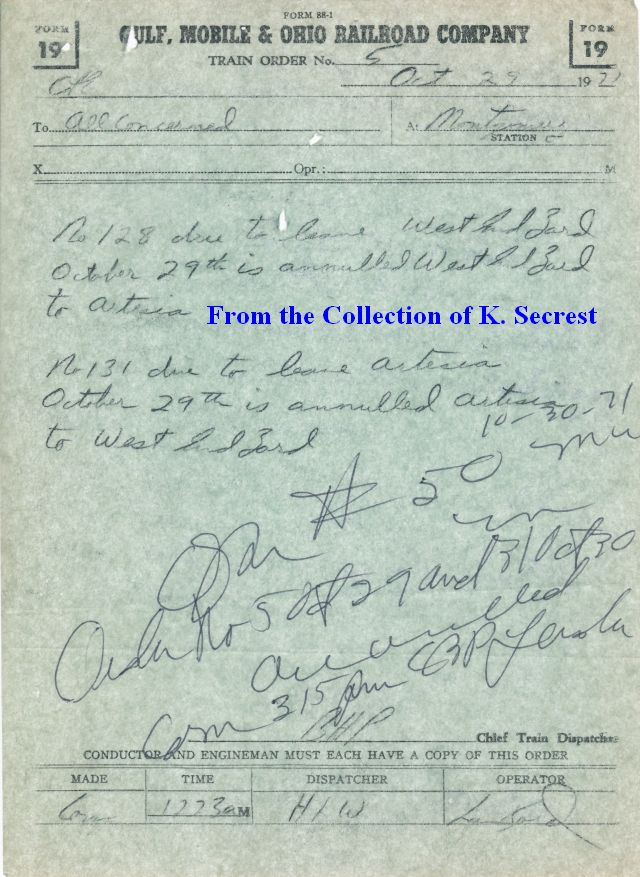 FORM 88-1
FORM 19
GULF, MOBILE & OHIO RAILROAD COMPANY
FORM 19
TRAIN ORDER No. 5
Oct 29 1971
To All Concerned At
STATION
X Opr.; M
No 128 due to leave West End Yard
October 29th is annulled West End Yard
to Artesia
From the Collection of K. Secrest
No 131 due to leave Artesia
October 29th is annulled Artesia
to West End Yard
10-30-71
# 50
Order No 5 Oct 29 and 31 Oct 30
are annulled
Com 315 pm
Chief Train Dispatcher
CONDUCTOR AND ENGINEMAN MUST EACH HAVE A COPY OF THIS ORDER
MADE TIME DISPATCHER OPERATOR
Com 1223a M HLW